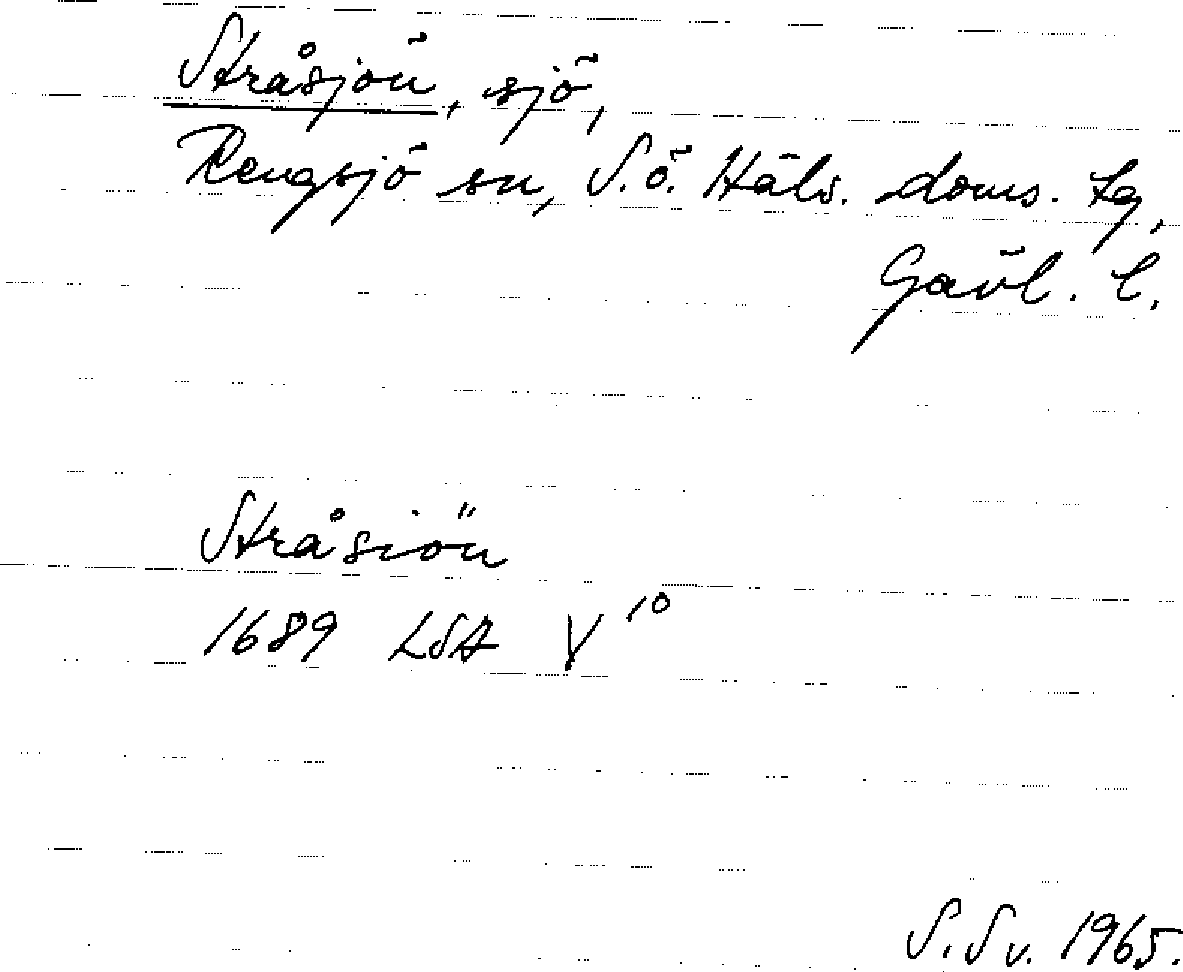 Stråsjön, sjö,
Rengsjö sn, S.ö. Häls. doms. tg,
Gävl. l.
Stråsiön
1689 LSA V 10
S. Sv. 1965.